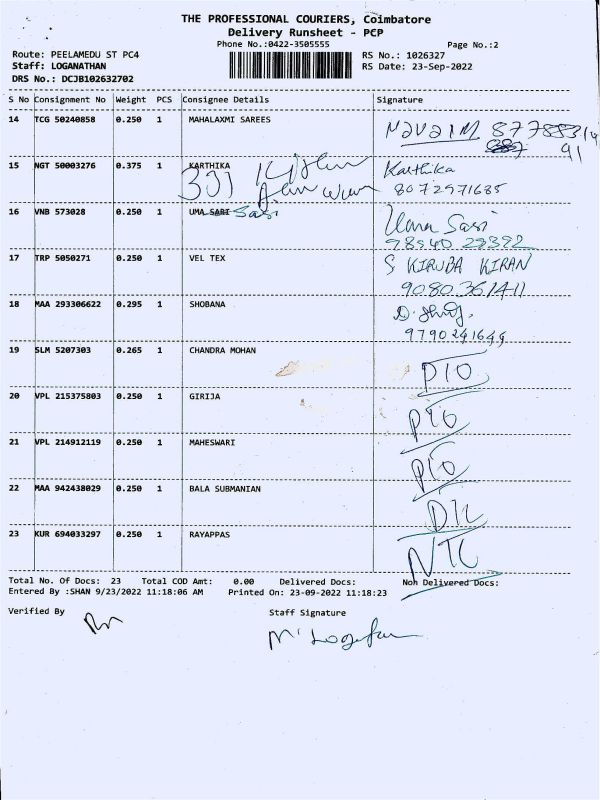 THE PROFESSIONAL COURIERS, Coimbatore
Delivery Runsheet - PCP
Phone No.:0422-3505555
Page No.:2
Route: PEELAMEDU ST PC4
RS No.: 1026327
Staff: LOGANATHAN
RS Date: 23-Sep-2022
DRS No.: DCJB102632702
S No Consignment No Weight PCS Consignee Details Signature
14 TCG 50240858 0.250 1 MAHALAXMI SAREES
15 NGT 50003276 0.375 1 KARTHIKA Karthika
8072971685
16 VNB 573028 0.250 1 UMA SARI Sasi Uma Sasi
17 TRP 5050271 0.250 1 VEL TEX S KIRUBA KIRAN
9080361411
18 MAA 293306622 0.295 1 SHOBANA
9790241649
19 SLM 5207303 0.265 1 CHANDRA MOHAN PIO
20 VPL 215375803 0.250 1 GIRIJA
21 VPL 214912119 0.250 1 MAHESWARI PIO
22 MAA 942438029 0.250 1 BALA SUBMANIAN DTL
23 KUR 694033297 0.250 1 RAYAPPAS NTC
Total No. Of Docs: 23 Total COD Amt: 0.00 Delivered Docs: Non Delivered Docs:
Entered By :SHAN 9/23/2022 11:18:06 AM Printed On: 23-09-2022 11:18:23
Verified By Staff Signature